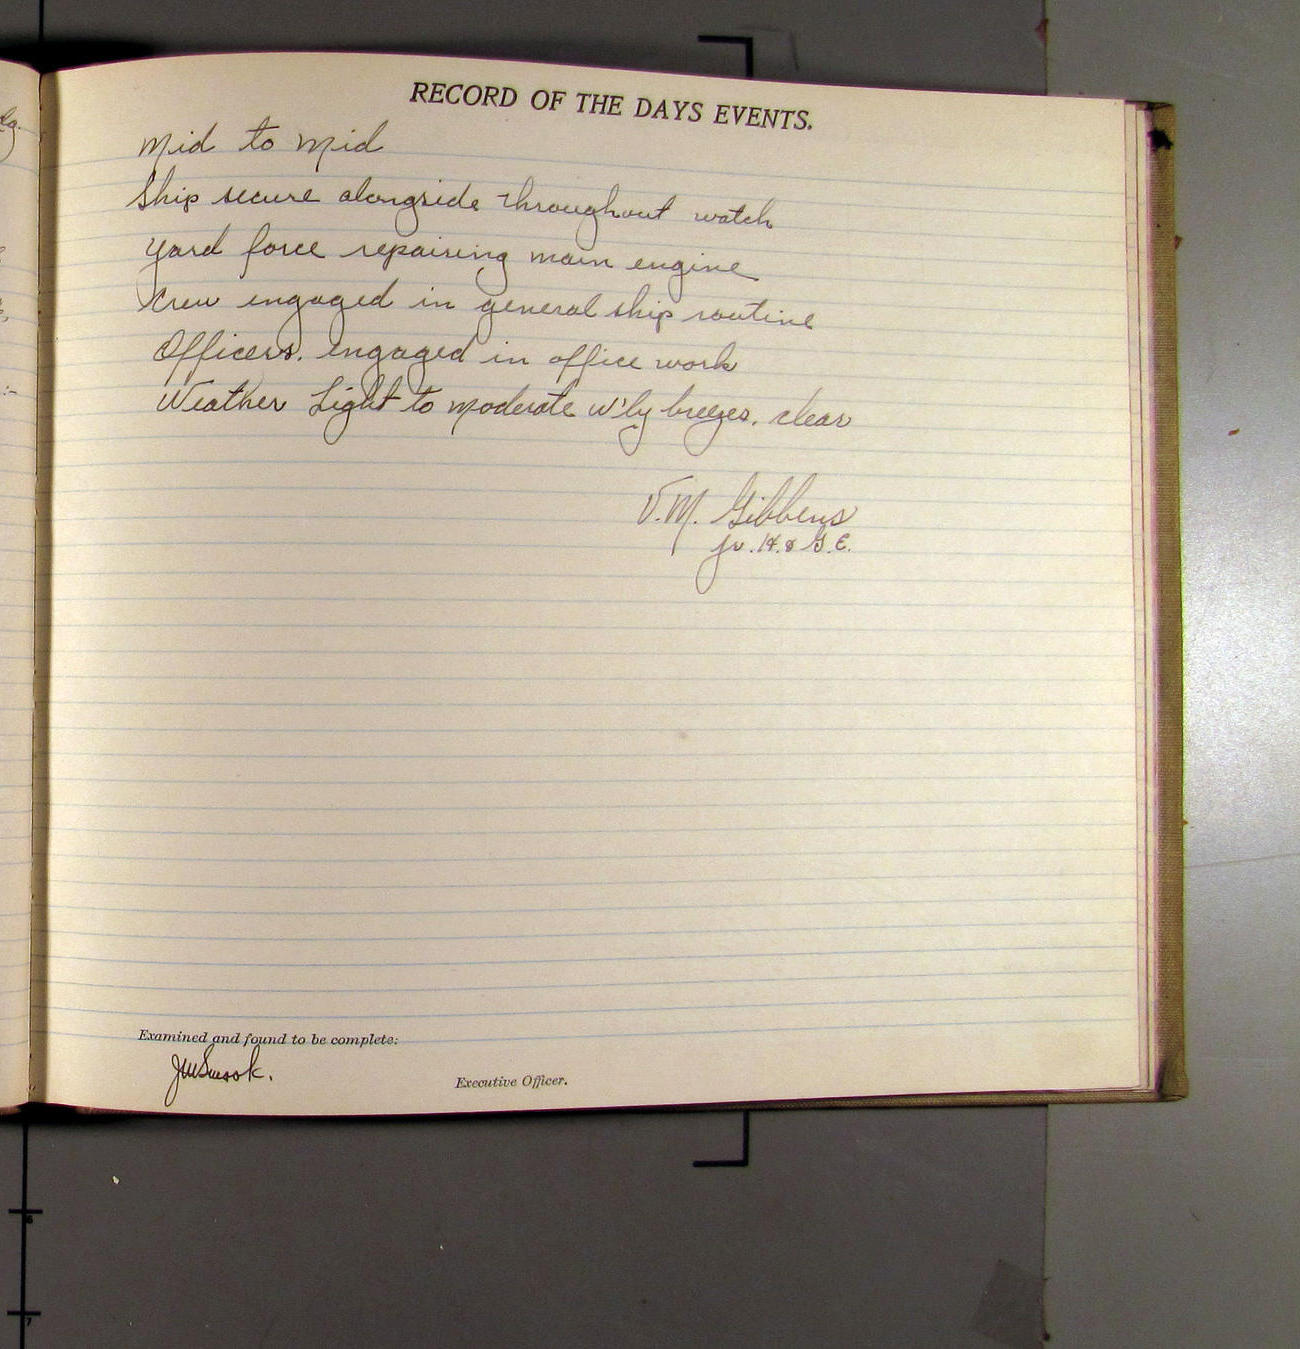 RECORD OF THE DAYS EVENTS.
Mid to Mid
Ship secure alongside throughout watch
Yard force repairing main engine
Crew engaged in general ship routine
Officers. engaged in office work
Weather Light to Moderate W'ly breezes. clear
V.M. Gibbens
Jr. H. & G. E.
Examined and found to be complete:
Executive Officer.
6
7